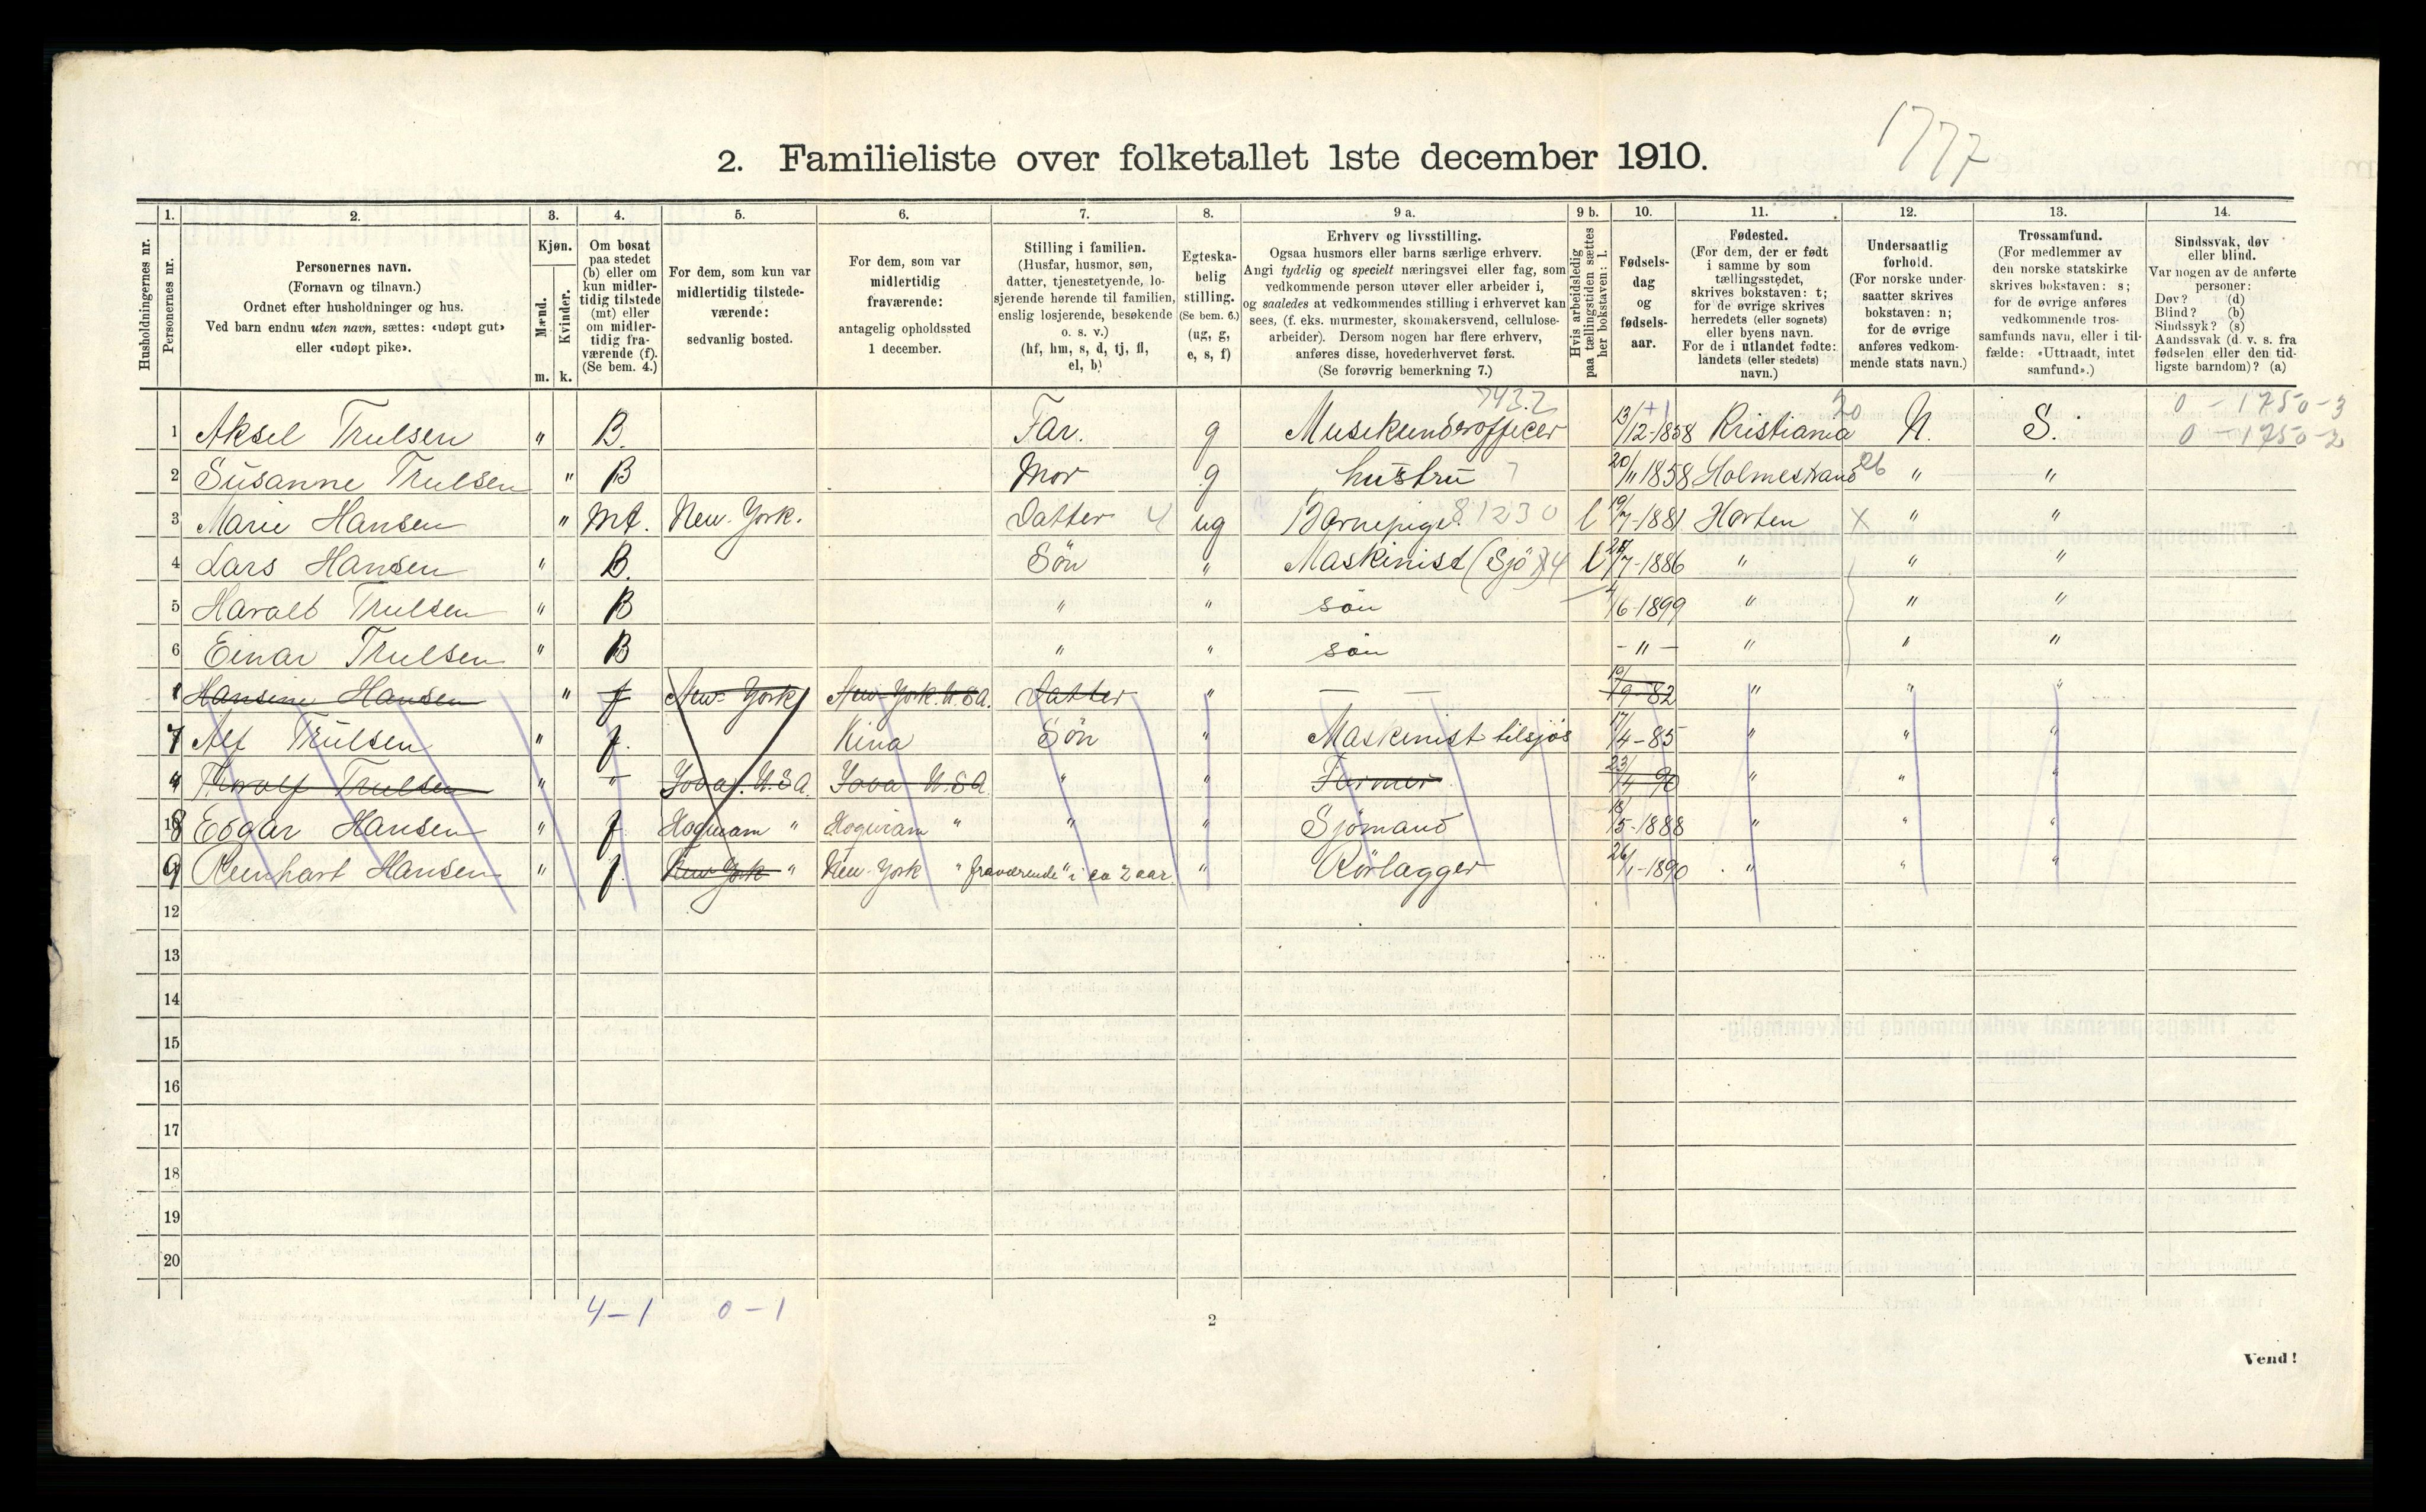 1777
2. Familieliste over folketallet 1ste december 1910.
1. 2. 3. 4. 5. 6. 7. 8. 9 a. 9 b. 10. 11. 12. 13. 14.
Husholdningernes nr.
Personernes nr.
Personernes navn.
(Fornavn og tilnavn.)
Ordnet efter husholdninger og hus.
Ved barn endnu uten navn, sættes: «udøpt gut»
eller «udøpt pike».
Kjøn.
Mænd.
Kvinder.
m. k.
Om bosat
paa stedet
(b) eller om
kun midler-
tidig tilstede
(mt) eller
om midler-
tidig fra-
værende (f).
(Se bem. 4.)
For dem, som kun var
midlertidig tilstede-
værende:
sedvanlig bosted.
For dem, som var
midlertidig
fraværende:
antagelig opholdssted
1 december.
Stilling i familien.
(Husfar, husmor, søn,
datter, tjenestetyende, lo-
sjerende hørende til familien,
enslig losjerende, besøkende
o. s. v.)
(hf, hm, s, d, tj, fl,
el, b)
Egteska-
belig
stilling.
(Se bem. 6.)
(ug, g,
e, s, f)
Erhverv og livsstilling.
Ogsaa husmors eller barns særlige erhverv.
Angi tydelig og specielt næringsvei eller fag, som
vedkommende person utøver eller arbeider i,
og saaledes at vedkommendes stilling i erhvervet kan
sees, (f. eks. murmester, skomakersvend, cellulose-
arbeider). Dersom nogen har flere erhverv,
anføres disse, hovederhvervet først.
(Se forøvrig bemerkning 7.)
Hvis arbeidsledig
paa tællingstiden sættes
her bokstaven: l.
Fødsels-
dag
og
fødsels-
aar.
Fødested.
(For dem, der er født
i samme by som
tællingsstedet,
skrives bokstaven: t;
for de øvrige skrives
herredets (eller sognets)
eller byens navn.
For de i utlandet fødte:
landets (eller stedets)
navn.)
Undersaatlig
forhold.
(For norske under-
saatter skrives
bokstaven: n;
for de øvrige
anføres vedkom-
mende stats navn.)
Trossamfund.
(For medlemmer av
den norske statskirke
skrives bokstaven: s;
for de øvrige anføres
vedkommende tros-
samfunds navn, eller i til-
fælde: «Uttraadt, intet
samfund».)
Sindssvak, døv
eller blind.
Var nogen av de anførte
personer:
Døv? (d)
Blind? (b)
Sindssyk? (s)
Aandssvak (d. v. s. fra
fødselen eller den tid-
ligste barndom)? (a)
7432 20 0 - 1750-3
1 Aksel Trulsen " B. Far. g Musikunderofficer 13/12-1858 Kristiania N. S. 0 - 1750-2
2 Susanne Trulsen " B Mor g hustru 7 20/11 1858 Holmestrand " "
3 Marie Hansen " Mt. New-York. Datter 4 ug Barnepige. 81230 l 19/7-1881 Horten X " "
4 Lars Hansen " B. Søn " Maskinist (Sjø) l /7-1886 " " "
5 Harald Trulsen " B " " søn /6-1899 " " "
6 Einar Trulsen " B " " søn - " - " " "
Hansine Hansen " f New-York New-York. U.S.A. Datter " — — 10/9-82 " " "
7 Alf Trulsen " f. Kina Søn " Maskinist tilsjøs 17/4-85 " " "
Thoralf Trulsen " " Iova. U.S.A. Iova U.S.A. " " Farmer 23/4 90 " " "
8 Edgar Hansen " f Hoquiam " Hoquiam " " " Sjømand 18/5-1888 " " "
9 Reinhart Hansen " f. New-York " New-York " fraværende" i ca 2 aar. " Rørlægger 26/1-1890 " " "
12
13
14
15
16
17
18
19
20
4-1 0-1
2
Vend!